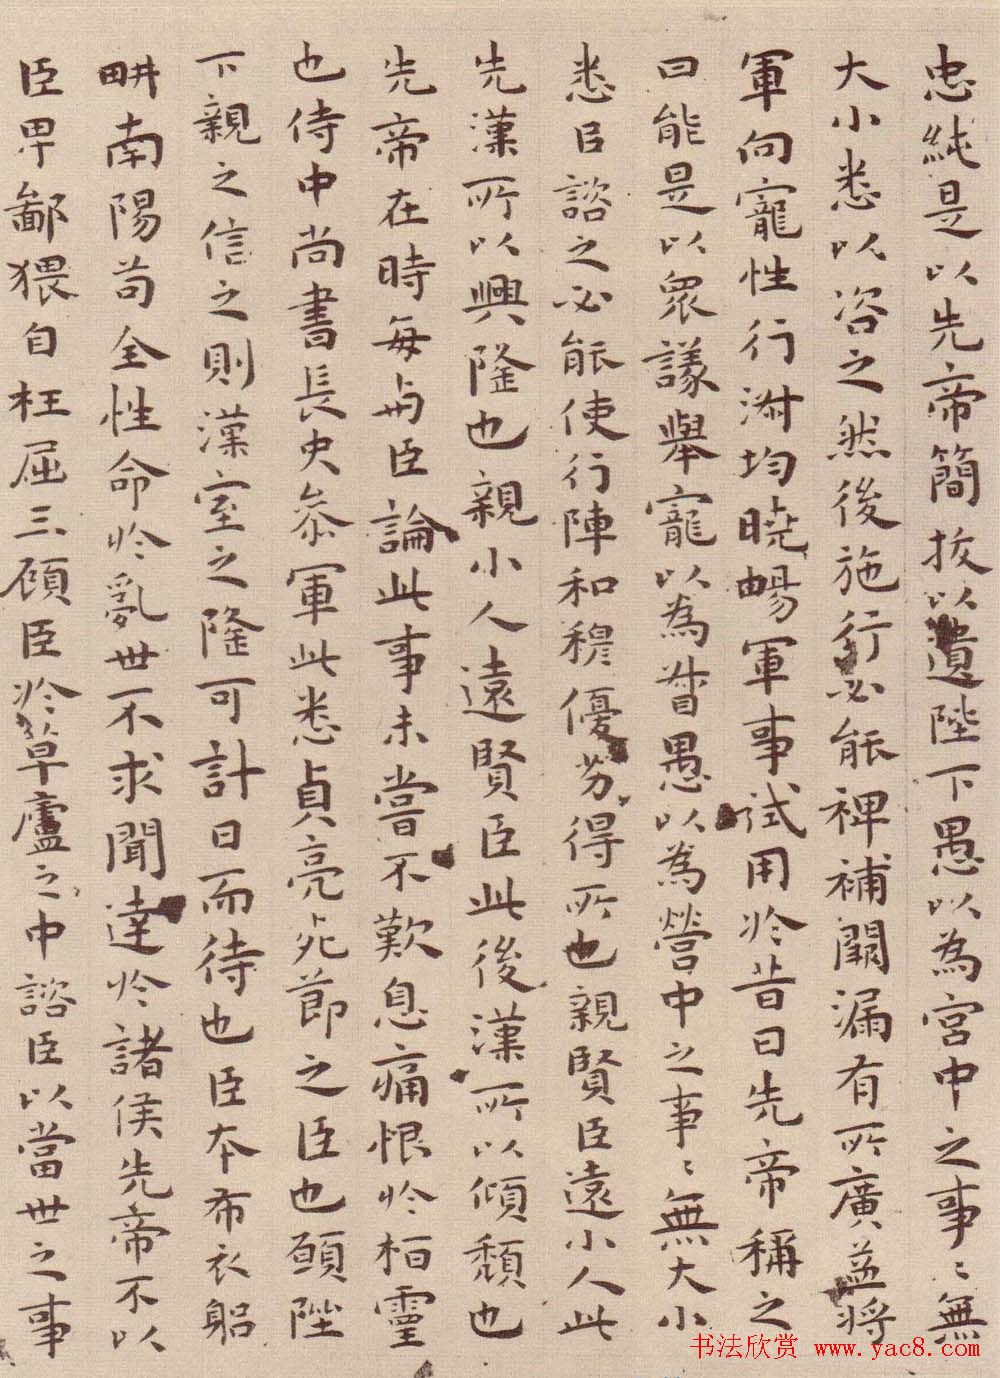 忠純是以先帝簡拔以遺陛下愚以為宮中之事〻無
大小悉以咨之然後施行必能裨補闕漏有所廣益將
軍向寵性行淑均曉暢軍事試用於昔日先帝稱之
曰能是以眾議舉寵以為督愚以為營中之事〻無大小
悉臣諮之必能使行陣和穆優劣得所也親賢臣遠小人此
先漢所以興隆也親小人遠賢臣此後漢所以傾頹也
先帝在時每與臣論此事未嘗不歎息痛恨於桓靈
也侍中尚書長史參軍此悉貞亮死節之臣也願陛
下親之信之則漢室之隆可計日而待也臣本布衣躬
畊南陽苟全性命於亂世不求聞達於諸侯先帝不以
臣卑鄙猥自枉屈三顧臣於草廬之中諮臣以當世之事
书法欣赏 www.yac8.com